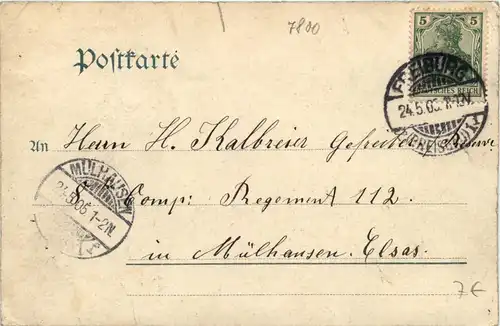 7800
Postkarte
5 5
DEUTSCHES REICH
FREIBURG
24.5.05. 1-2N.
(BREISGAU)
An Herrn H. Kalbreier Gefreiter
MÜLHAUSEN
24.5.05 1-2N.
Comp: Regement 112.
in Mülhausen. Elsas.
7€